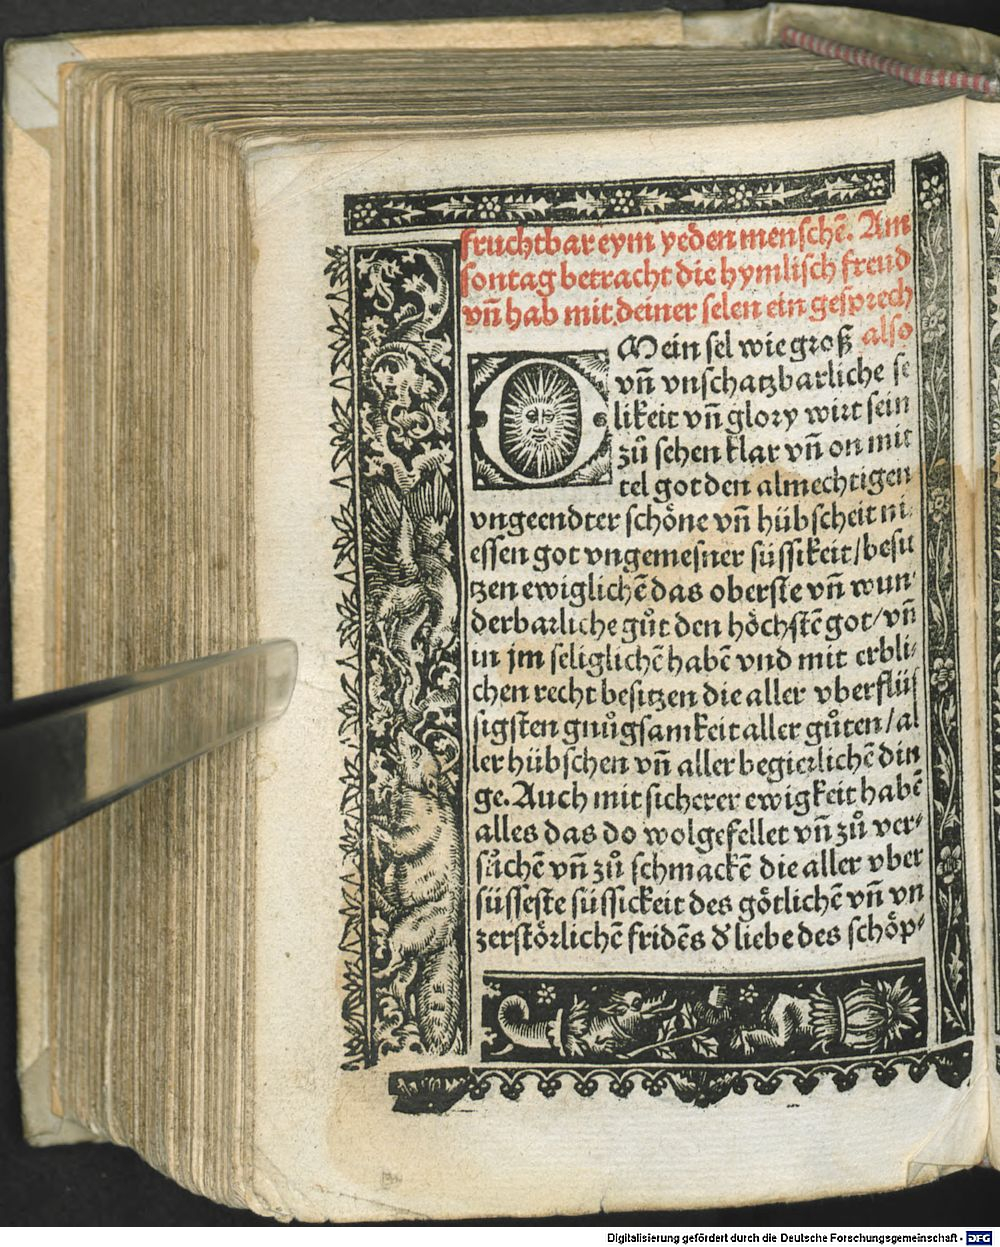 fruchtbar eym yeden menschē. Am
sontag betracht die hymlisch freud
vn̄ hab mit deiner selen ein gesprech
also
O Mein sel wie groß
vn̄ vnschatzbarliche se
likeit vn̄ glory wirt sein
zů sehen klar vn̄ on mit
tel got den almechtigen
vngeendter schöne vn̄ hübscheit ni⸗
essen got vngemesner süssikeit/besit
tzen ewiglichē das oberste vn̄ wun⸗
derbarliche gůt den höchstē got/vn̄
in jm seliglichē habē vnd mit erbli⸗
chen recht besitzen die aller vberflüs
sigsten gnůgsamkeit aller gůten/al
ler hübschen vn̄ aller begierlichē din
ge. Auch mit sicherer ewigkeit habē
alles das do wolgefellet vn̄ zů ver⸗
sůchē vn̄ zů schmackē die aller vber
süsseste süssickeit des götlichē vn̄ vn
zerstörlichē fridēs d̕ liebe des schöp⸗
Digitalisierung gefördert durch die Deutsche Forschungsgemeinschaft - DFG